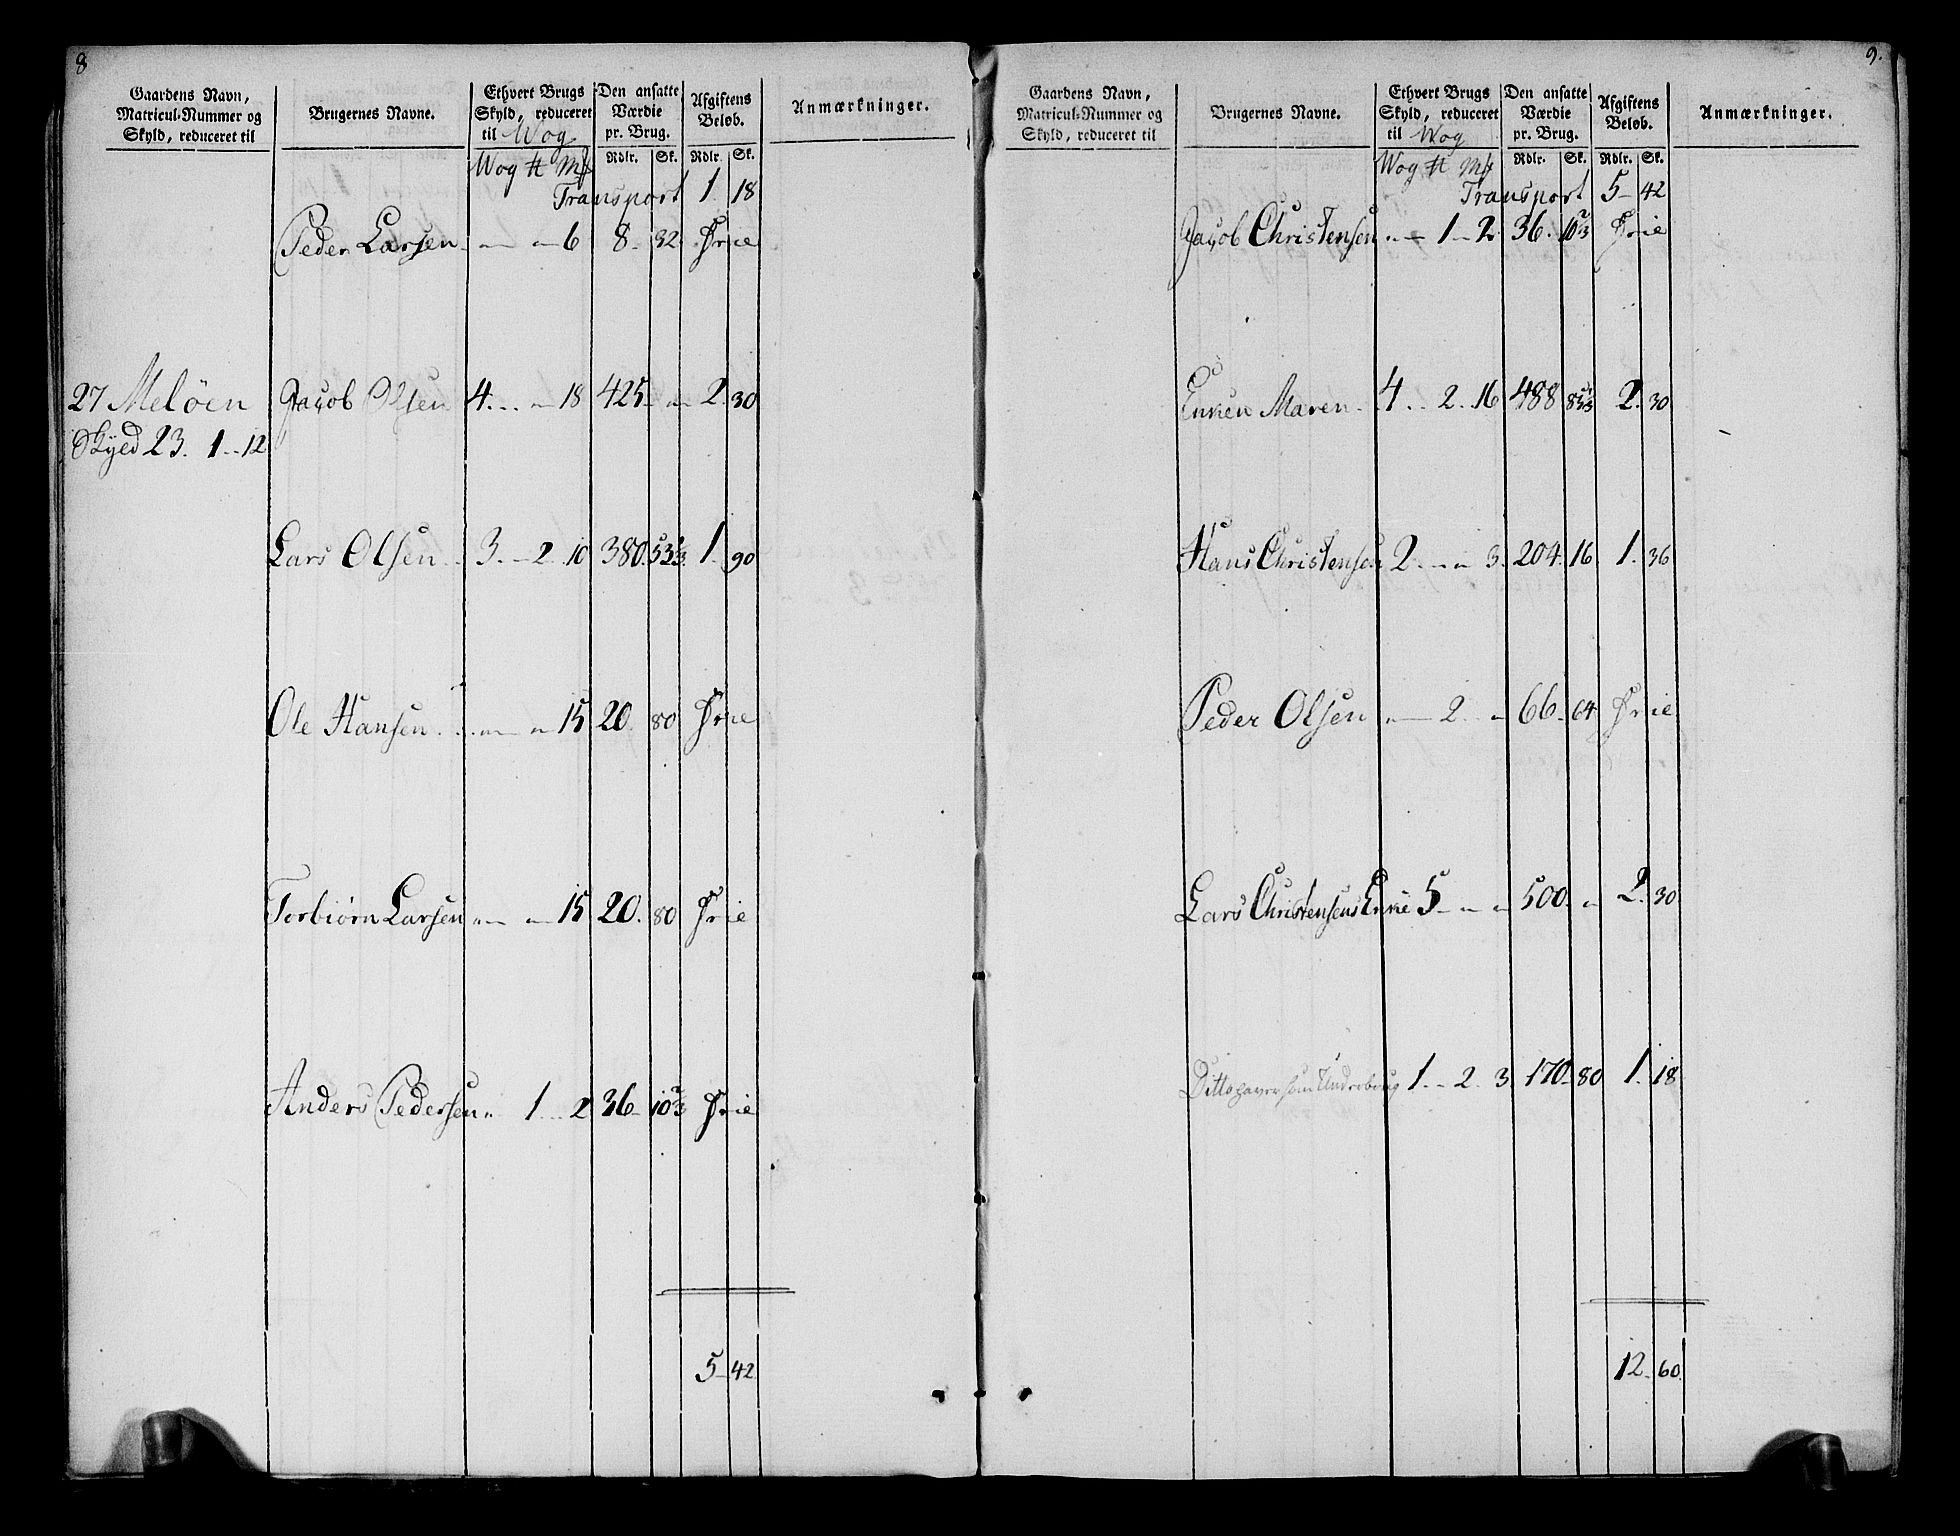 8
Gaardens Navn, Matricul-Nummer og Skyld, reduceret til
Brugernes Navne.
Ethvert Brugs Skyld, reduceret til Wog
Den ansatte Værdie pr. Brug.
Afgiftens Beløb.
Anmærkninger.
Wog ℔ Mk Rdlr. Sk. Rdlr. Sk.
Transport 1. 18
Peder Larsen 6 8. 32. Frie
27 Meløen Jacob Olsen 4. 18 425 2. 30
Skyld 23. 1 12
Lars Olsen 3. 2 10 380. 53 1/3 1. 90
Ole Hansen 15 20. 80 Frie
Torbiørn Larsen 15 20. 80 Frie
Anders Pedersen 1 2 36 10 2/3 Frie
5 42
9.
Gaardens Navn, Matricul-Nummer og Skyld, reduceret til
Brugernes Navne.
Ethvert Brugs Skyld, reduceret til Wog
Den ansatte Værdie pr. Brug.
Afgiftens Beløb.
Anmærkninger.
Wog ℔ Mk Rdlr. Sk. Rdlr. Sk.
Transport 5 42
Jacob Christensen 1 2. 36. 10 2/3 Frie
Enken Maren 4 2. 16 488 85 1/3 2. 30
Hans Christensen 2 3. 204. 16 1. 36
Peder Olsen 2. 66 64 Frie
Lars Christensens Enke 5 500. 2. 30
Ditto haver som Underbrug 1 2 3 170 80 1. 18
12 60